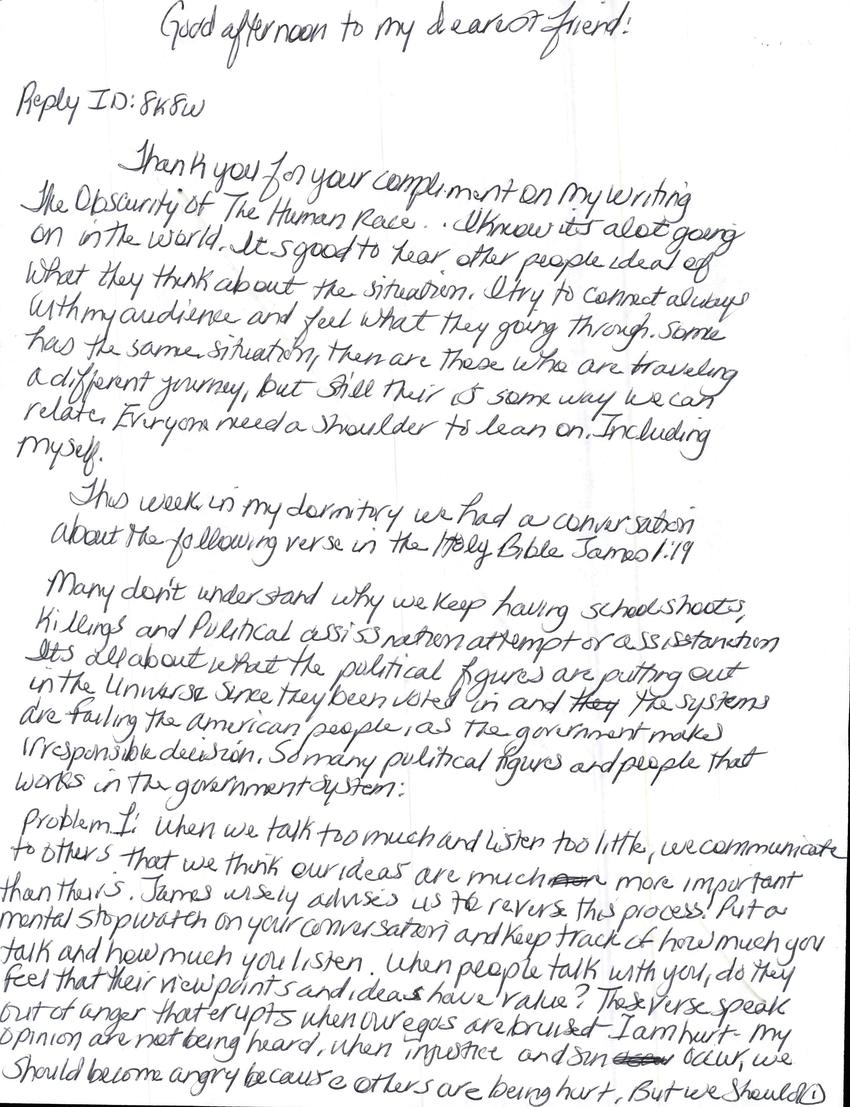 Good afternoon to my dearest friend!
Reply ID: 8K8W
Thank you for your compliment on my writing
The Obscurity of The Human Race... I know it's alot going
on in the world. It's good to hear other people ideal of
what they think about the situation. I try to connect always
with my audience and feel what they going through. Some
has the same situation, then are those who are traveling
a different journey, but still their is some way we can
relate. Everyone need a shoulder to lean on. Including
myself.
This week in my dormitory we had a conversation
about the following verse in the Holy Bible James 1:19
Many don't understand why we keep having school shoots,
Killings and Political assissnation attempt or assisstanction
It's all about what the political figures are putting out
in the Universe since they been voted in and they the systems
are failing the american people, as the government makes
irresponsible decision. So many political figures and people that
works in the government system:
Problem I: When we talk too much and listen too little, we communicate
to others that we think our ideas are much more important
than theirs. James wisely advises us to reverse this process! Put a
mental stopwatch on your conversation and keep track of how much you
talk and how much you listen. When people talk with you, do they
feel that their viewpoints and ideas have value? These verse speak
out of anger that erupts when our egos are bruised - I am hurt - My
opinion are not being heard, when injustice and sin occur, we
should become angry because others are being hurt, But we should 1